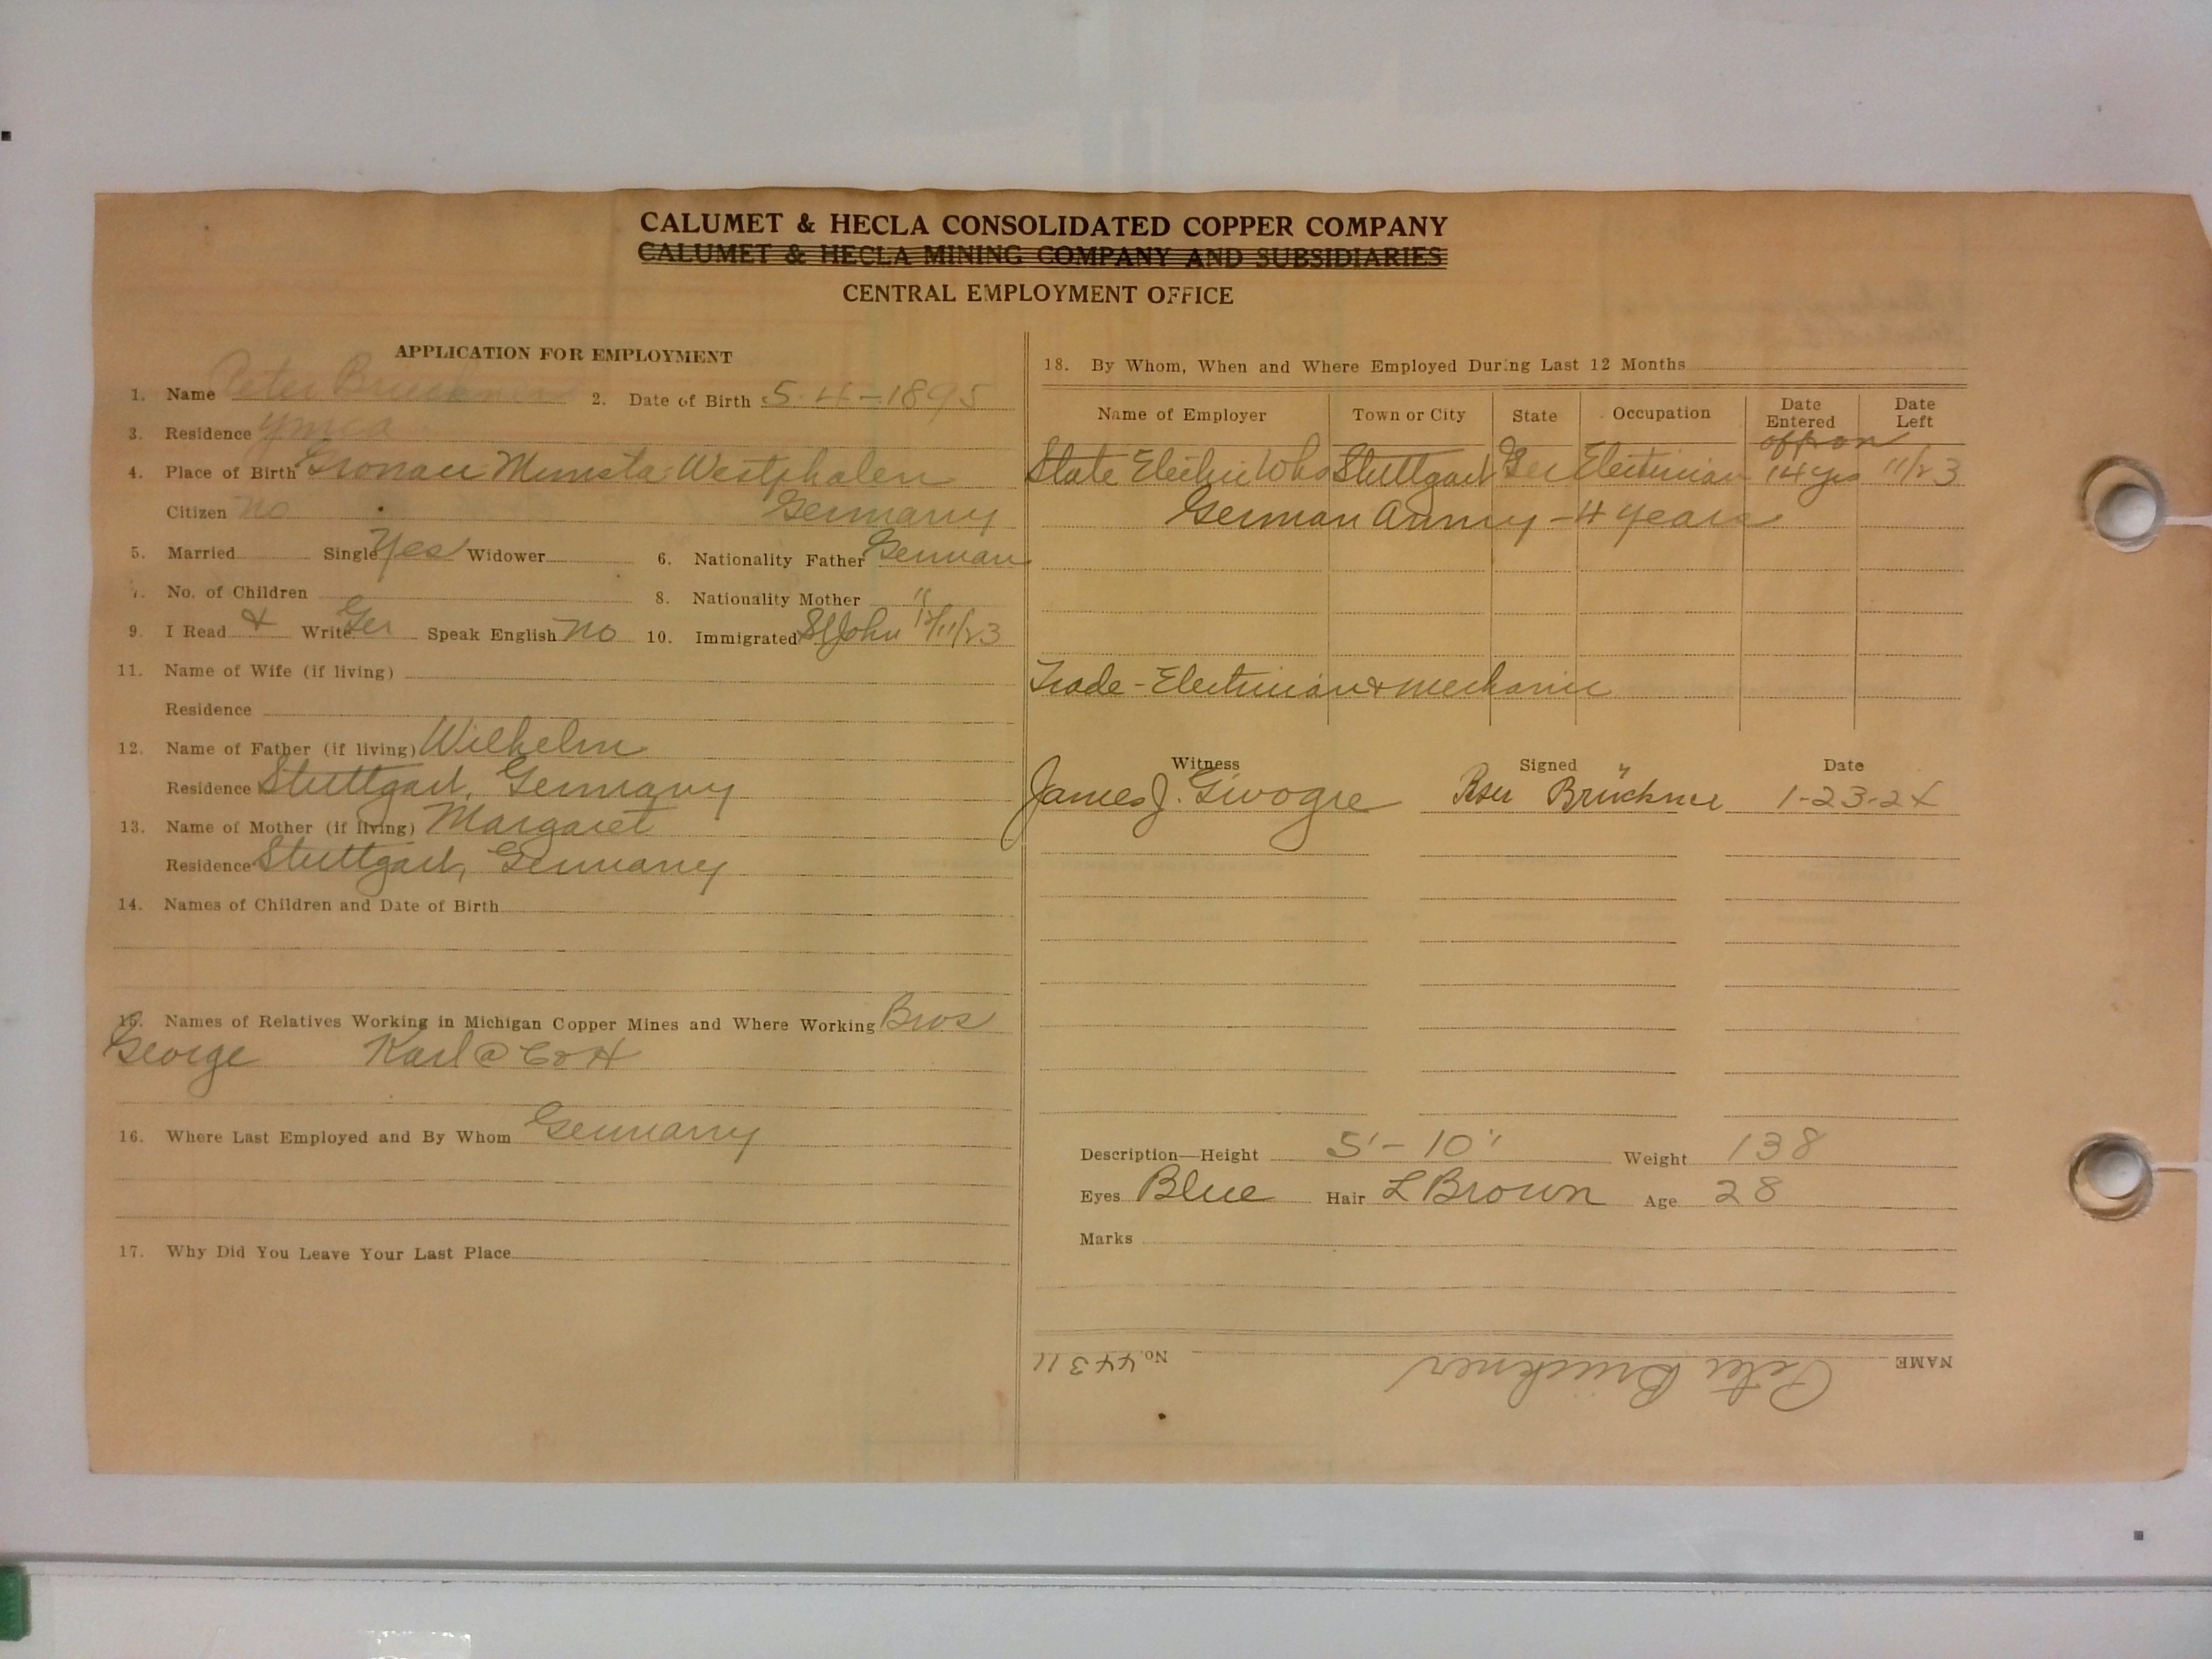 CALUMET & HECLA CONSOLIDATED COPPER COMPANY
CALUMET & HECLA MINING COMPANY AND SUBSIDIARIES
CENTRAL EMPLOYMENT OFFICE
APPLICATION FOR EMPLOYMENT
1. Name Peter Bruckner 2. Date of Birth 5-4-1895
3. Residence YMCA
4. Place of Birth Gronau Munsta Westphalen
Citizen No Germany
5. Married Single Yes Widower 6. Nationality Father German
7. No. of Children 8. Nationality Mother "
9. I Read & Write Ger Speak English No 10. Immigrated St John 12/11/23
11. Name of Wife (if living)
Residence
12. Name of Father (if living) Wilhelm
Residence Stuttgart, Germany
13. Name of Mother (if living) Margaret
Residence Stuttgart, Germany
14. Names of Children and Date of Birth
15. Names of Relatives Working in Michigan Copper Mines and Where Working Bros
George Karl @ C&H
16. Where Last Employed and By Whom Germany
17. Why Did You Leave Your Last Place
18. By Whom, When and Where Employed During Last 12 Months
Name of Employer Town or City State Occupation Date Entered Date Left
off & on
State Electric Wks Stuttgart Ger Electrician 14 yrs 11/23
German Army - 4 years
Trade - Electrician & mechanic
Witness Signed Date
James J. Brückner 1-23-24
Description—Height 5'-10" Weight 138
Eyes Blue Hair L Brown Age 28
Marks
NAME Peter Bruckner No. 44311